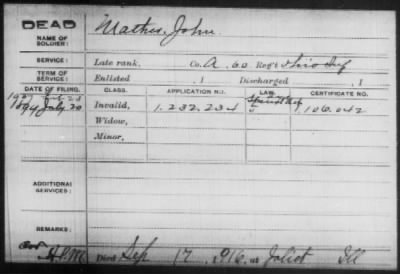 DEAD
NAME OF SOLDIER: Mather, John
SERVICE: Late rank, Co. A. 60 Reg't Ohio Inf
TERM OF SERVICE: Enlisted , 1 Discharged , 1
DATE OF FILING. CLASS. APPLICATION NO. LAW. CERTIFICATE NO.
1894 July 20 Invalid, 1.232.234 1,106.042
Widow,
Minor,
ADDITIONAL SERVICES:
REMARKS:
Died Sep 17, 1916, at Joliet Ill